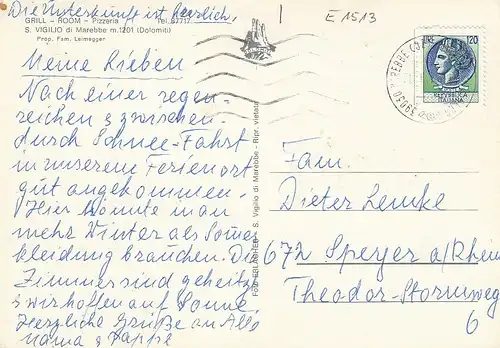 Die Unterkunft ist herzlich,
GRILL - ROOM - Pizzeria Tel. 57717
S. VIGILIO di Marebbe m. 1201 (Dolomiti)
Prop. Fam. Leimegger
Meine Lieben
Nach einer regen-
reichen & zwischen-
durch Schnee-Fahrt
in unserem Ferienort
gut angekommen.
Hier könnte man
mehr Winter als Somer
kleidung brauchen. Die
Zimmer sind geheitzt
& wir hoffen auf Sonne.
Herzliche Grüße an Alle
Mama & Pappe
S. VIGILIO di Marebbe - Ripr. vietata
E 1513
LIRE 120
REPUBBLICA
ITALIANA
39030
Fam.
Dieter Lemke
672 Speyer a/Rhein
Theodor-Stormweg
6